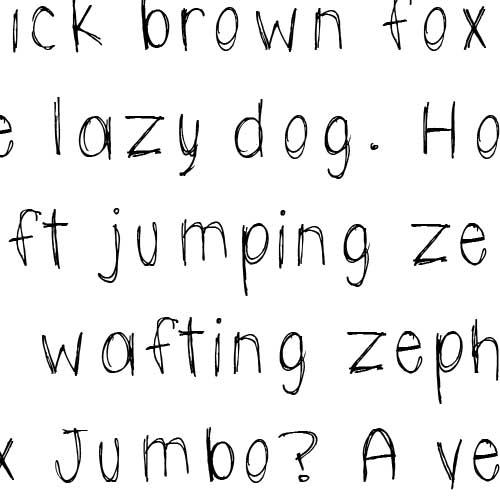 ick brown fox
e lazy dog. Ho
ft jumping ze
wafting zeph
x Jumbo? A ve